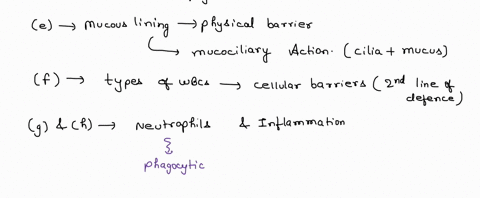 (e) → mucous lining → physical barrier
→ mucociliary Action. (cilia + mucus)
(f) → types of WBCs → cellular barriers (2nd line of defence)
(g) & (h) → Neutrophils & Inflammation
phagocytic